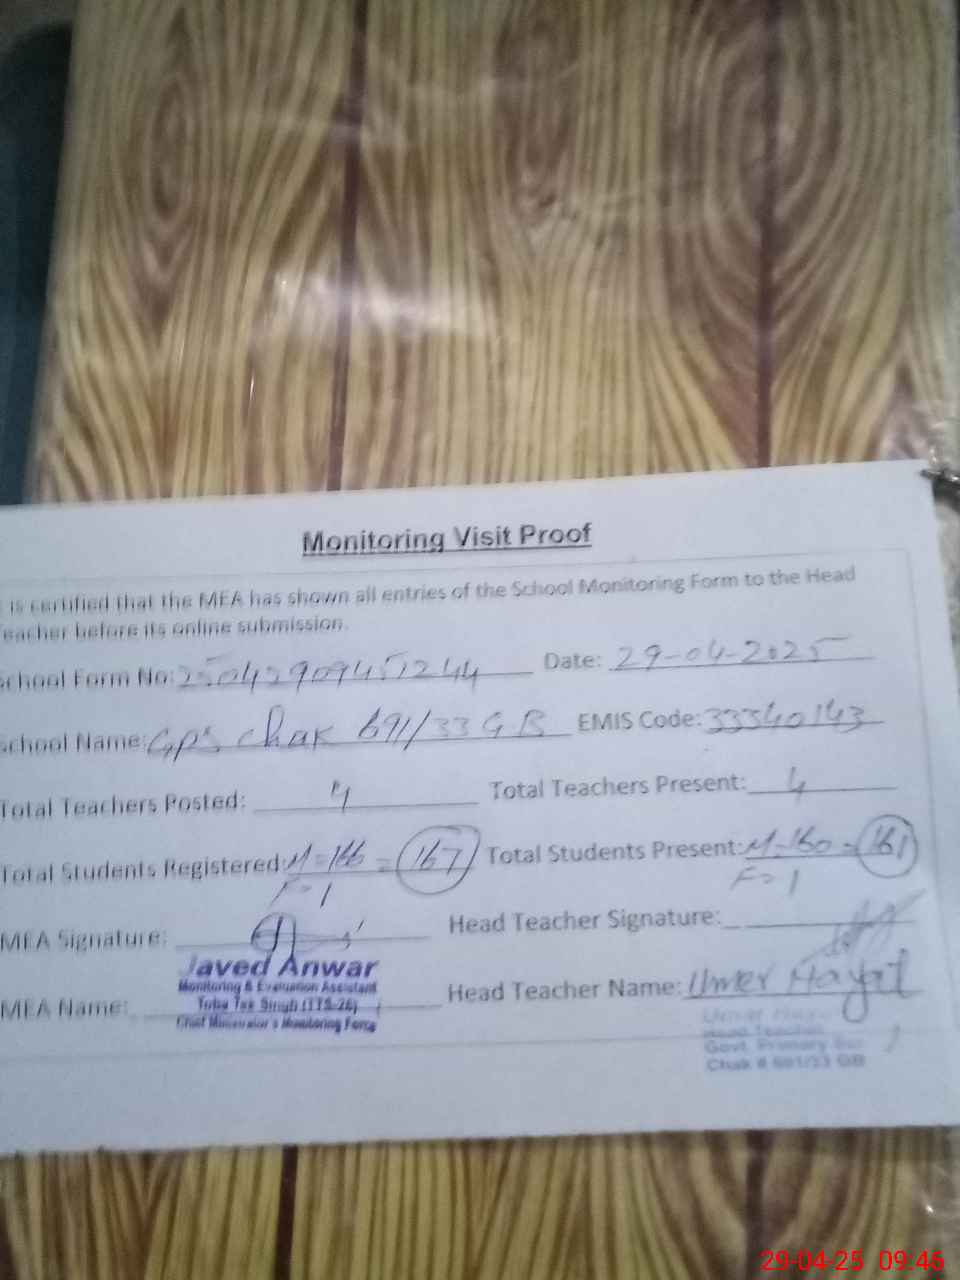 Monitoring Visit Proof
is certified that the MEA has shown all entries of the School Monitoring Form to the Head
eacher before its online submission.
chool Form No: 250429094951244 Date: 29-04-2025
chool Name: GPS Chak 691/33 GB EMIS Code: 33340143
Total Teachers Posted: 4 Total Teachers Present: 4
Total Students Registered: M=166 = 167 Total Students Present: M-160 = 161
F=1 F=1
MEA Signature: Head Teacher Signature:
Javed Anwar
Monitoring & Evaluation Assistant
MEA Name: Toba Tek Singh (TTS-26) Head Teacher Name: Umer Hayat
Chief Minister's Monitoring Force
Umer
Head Teacher
Govt. Primary
Chak # 691/33 GB
29-04-25 09:46